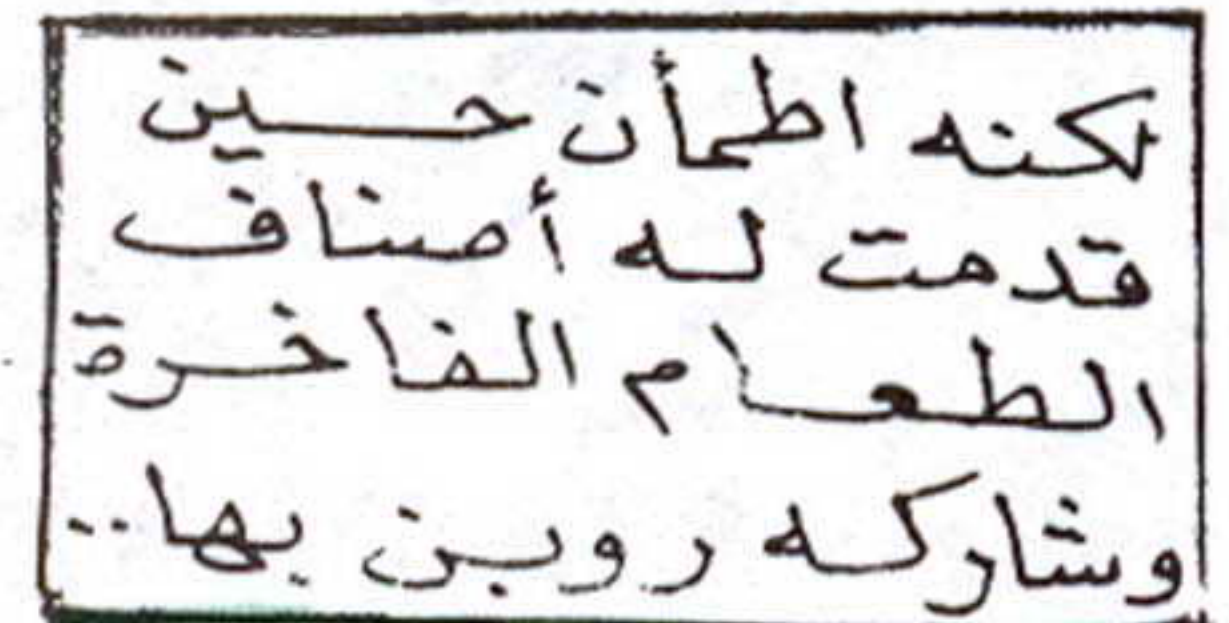 لكنه اطمأن حسين
قدمت له أصناف
الطعام الفاخرة
وشاركه روبن بها..